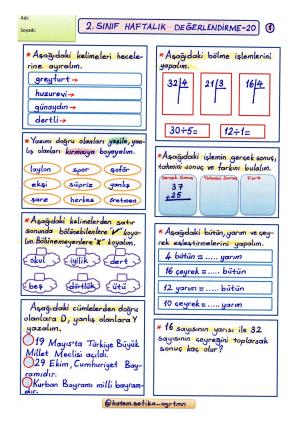 Adı:
Soyadı:
2. SINIF HAFTALIK DEĞERLENDİRME-20
1
* Aşağıdaki kelimeleri hecele-
rine ayıralım.
greyfurt →
huzurevi →
günaydın →
dertli →
* Yazımı doğru olanları yeşile, yan-
lış olanları kırmızıya boyayalım.
laylon spor şoför
ekşi süpriz yanlış
şarz herkes öğretmen
* Aşağıdaki kelimelerden satır
sonunda bölünebilenlere "✓" koya-
lım. Bölünemeyenlere "X" koyalım.
okul iyilik dert
beş dörtlük ütü
Aşağıdaki cümlelerden doğru
olanlara D, yanlış olanlara Y
yazalım.
19 Mayıs'ta Türkiye Büyük
Millet Meclisi açıldı.
29 Ekim, Cumhuriyet Bay-
ramıdır.
Kurban Bayramı milli bayram-
dır.
* Aşağıdaki bölme işlemlerini
yapalım.
32 4 21 3 16 4
30÷5= 12÷1=
* Aşağıdaki işlemin gerçek sonuç,
tahmini sonuç ve farkını bulalım.
Gerçek Sonuç Tahmini Sonuç Fark
37
+25
* Aşağıdaki bütün, yarım ve çey-
rek eşleştirmelerini yapalım.
4 bütün = ..... yarım
16 çeyrek = ..... bütün
12 yarım = ..... bütün
10 çeyrek = ..... yarım
* 16 sayısının yarısı ile 32
sayısının çeyreğini toplarsak
sonuç kaç olur?
@hatem.sefika_ogrtmn